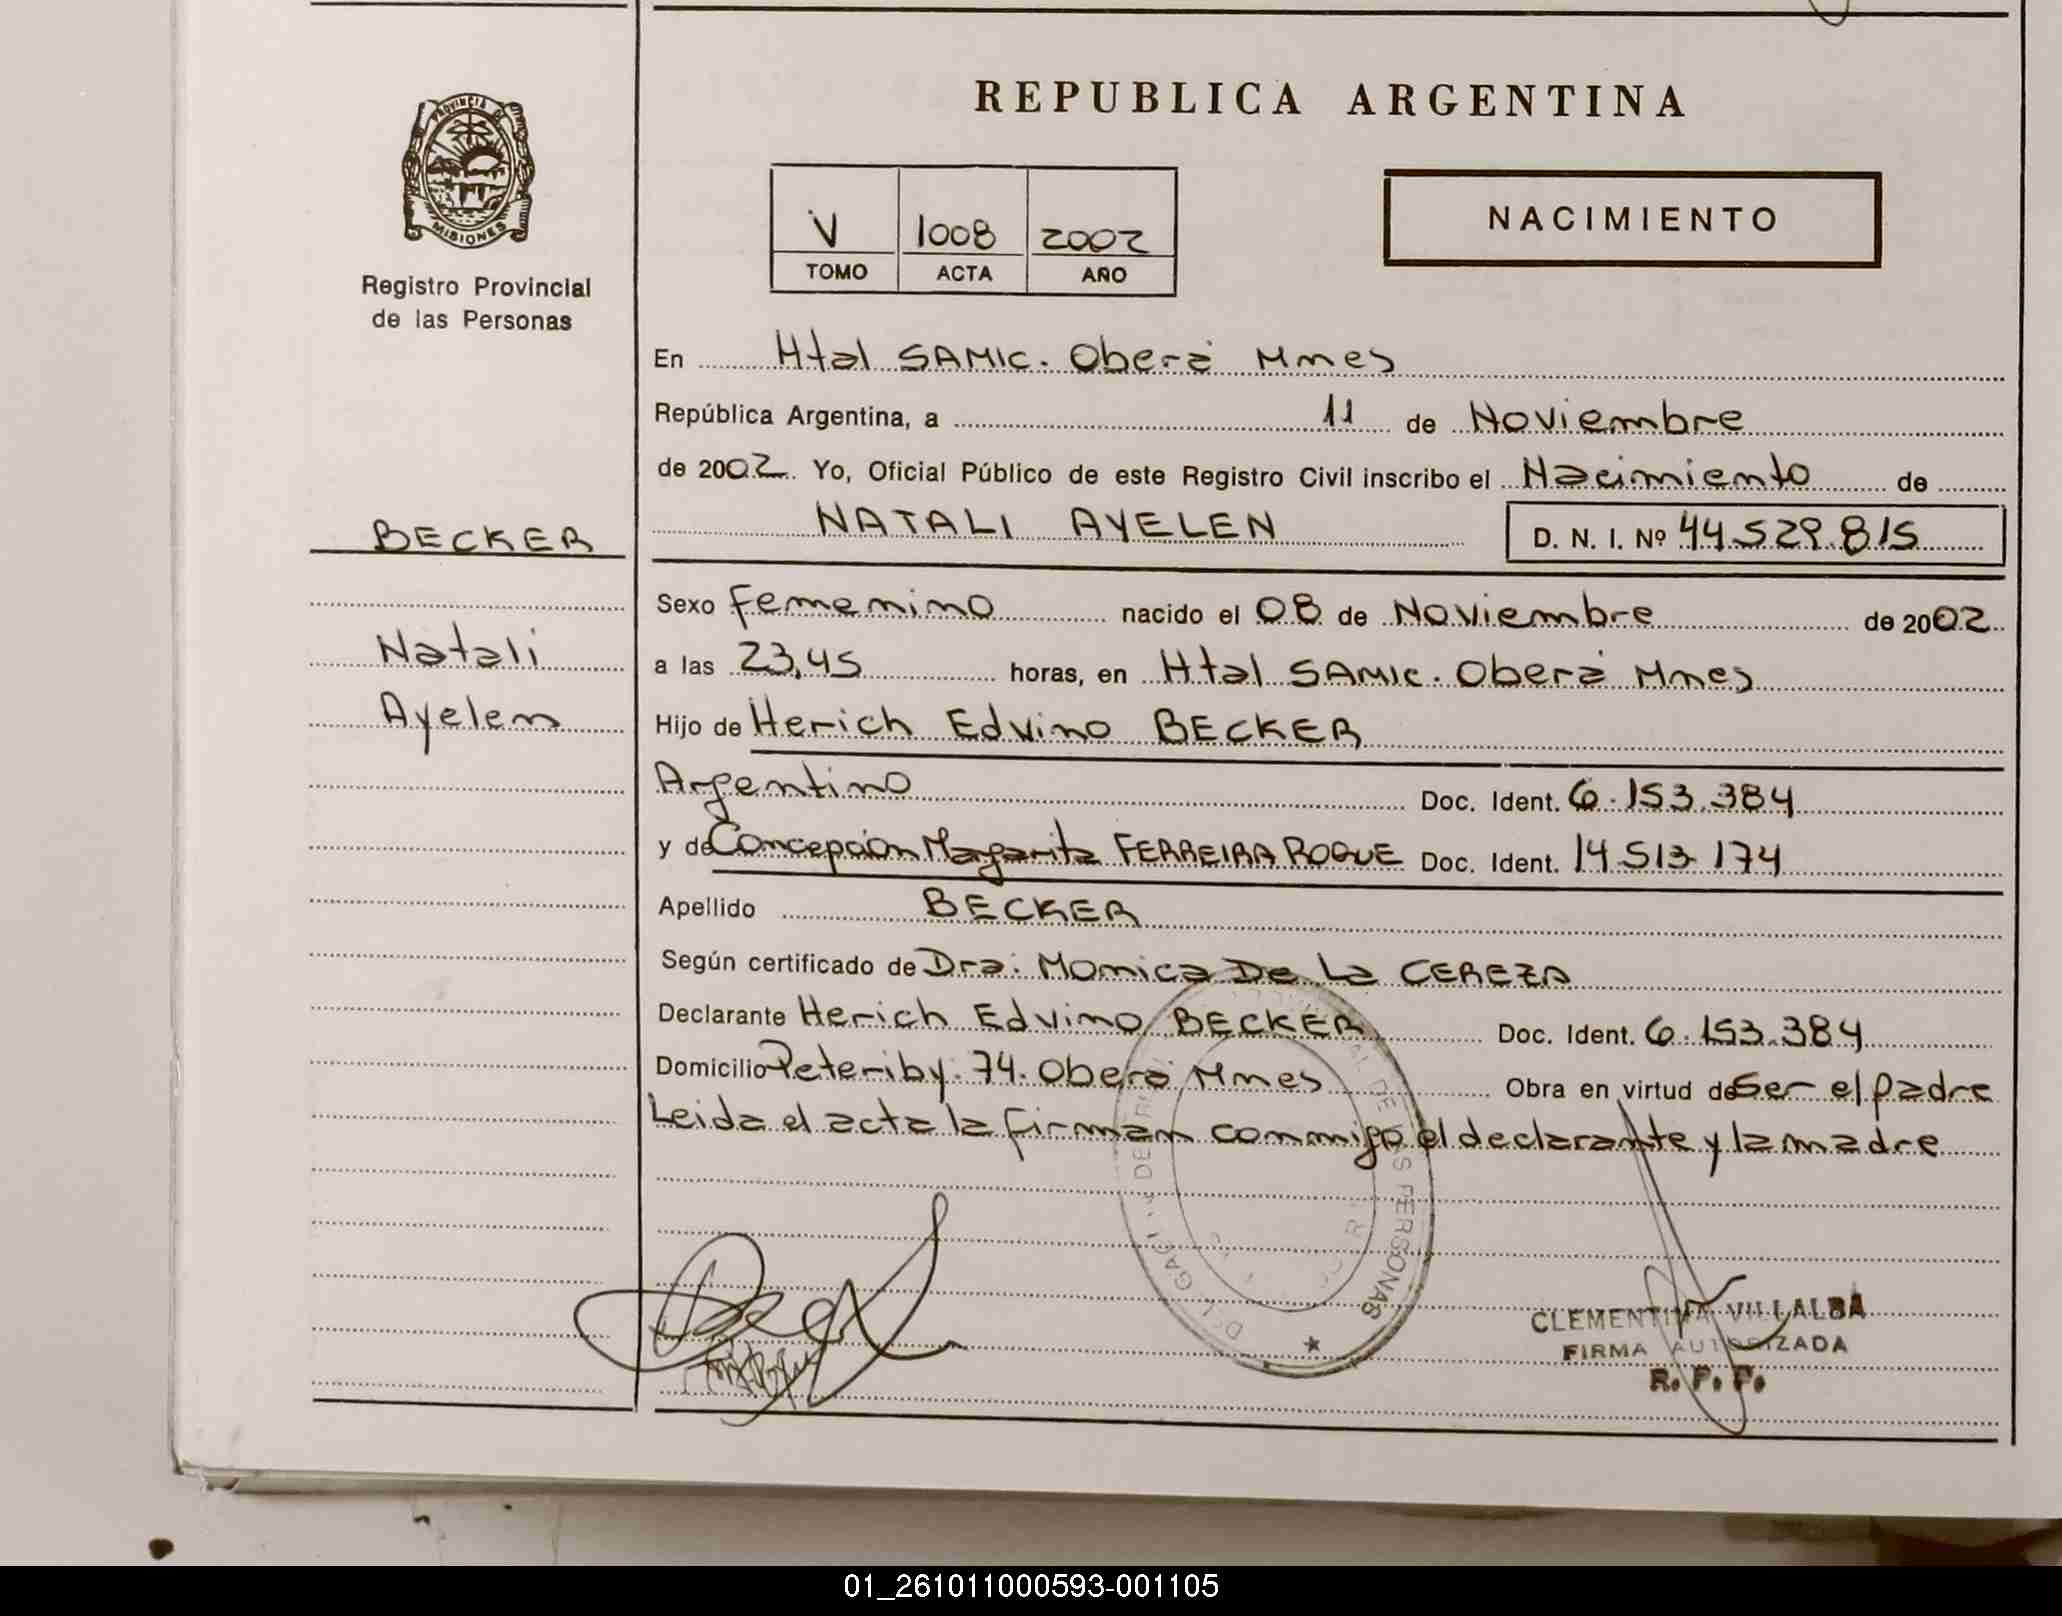 PROVINCIA DE
MISIONES
Registro Provincial
de las Personas
BECKER
Natali
Ayelen
REPUBLICA ARGENTINA
V 1008 2002
TOMO ACTA AÑO
NACIMIENTO
En Htal SAMIC. Oberá Mnes
República Argentina, a 11 de Noviembre
de 2002. Yo, Oficial Público de este Registro Civil inscribo el Nacimiento de
NATALI AYELEN D. N. I. Nº 44.529.815
Sexo femenino nacido el 08 de Noviembre de 2002
a las 23,45 horas, en Htal SAMIC. Oberá Mnes
Hijo de Herich Edvino BECKER
Argentino Doc. Ident. 6.153.384
y de Concepción Margarita FERREIRA ROQUE Doc. Ident. 14.513.174
Apellido BECKER
Según certificado de Dra. Monica De La CEREZA
Declarante Herich Edvino BECKER Doc. Ident. 6.153.384
Domicilio Peteriby. 74. Oberá Mnes Obra en virtud de Ser el padre
Leida el acta la firman conmigo el declarante y la madre
CLEMENTINA VILLALBA
FIRMA AUTORIZADA
R. P. P.
01_261011000593-001105